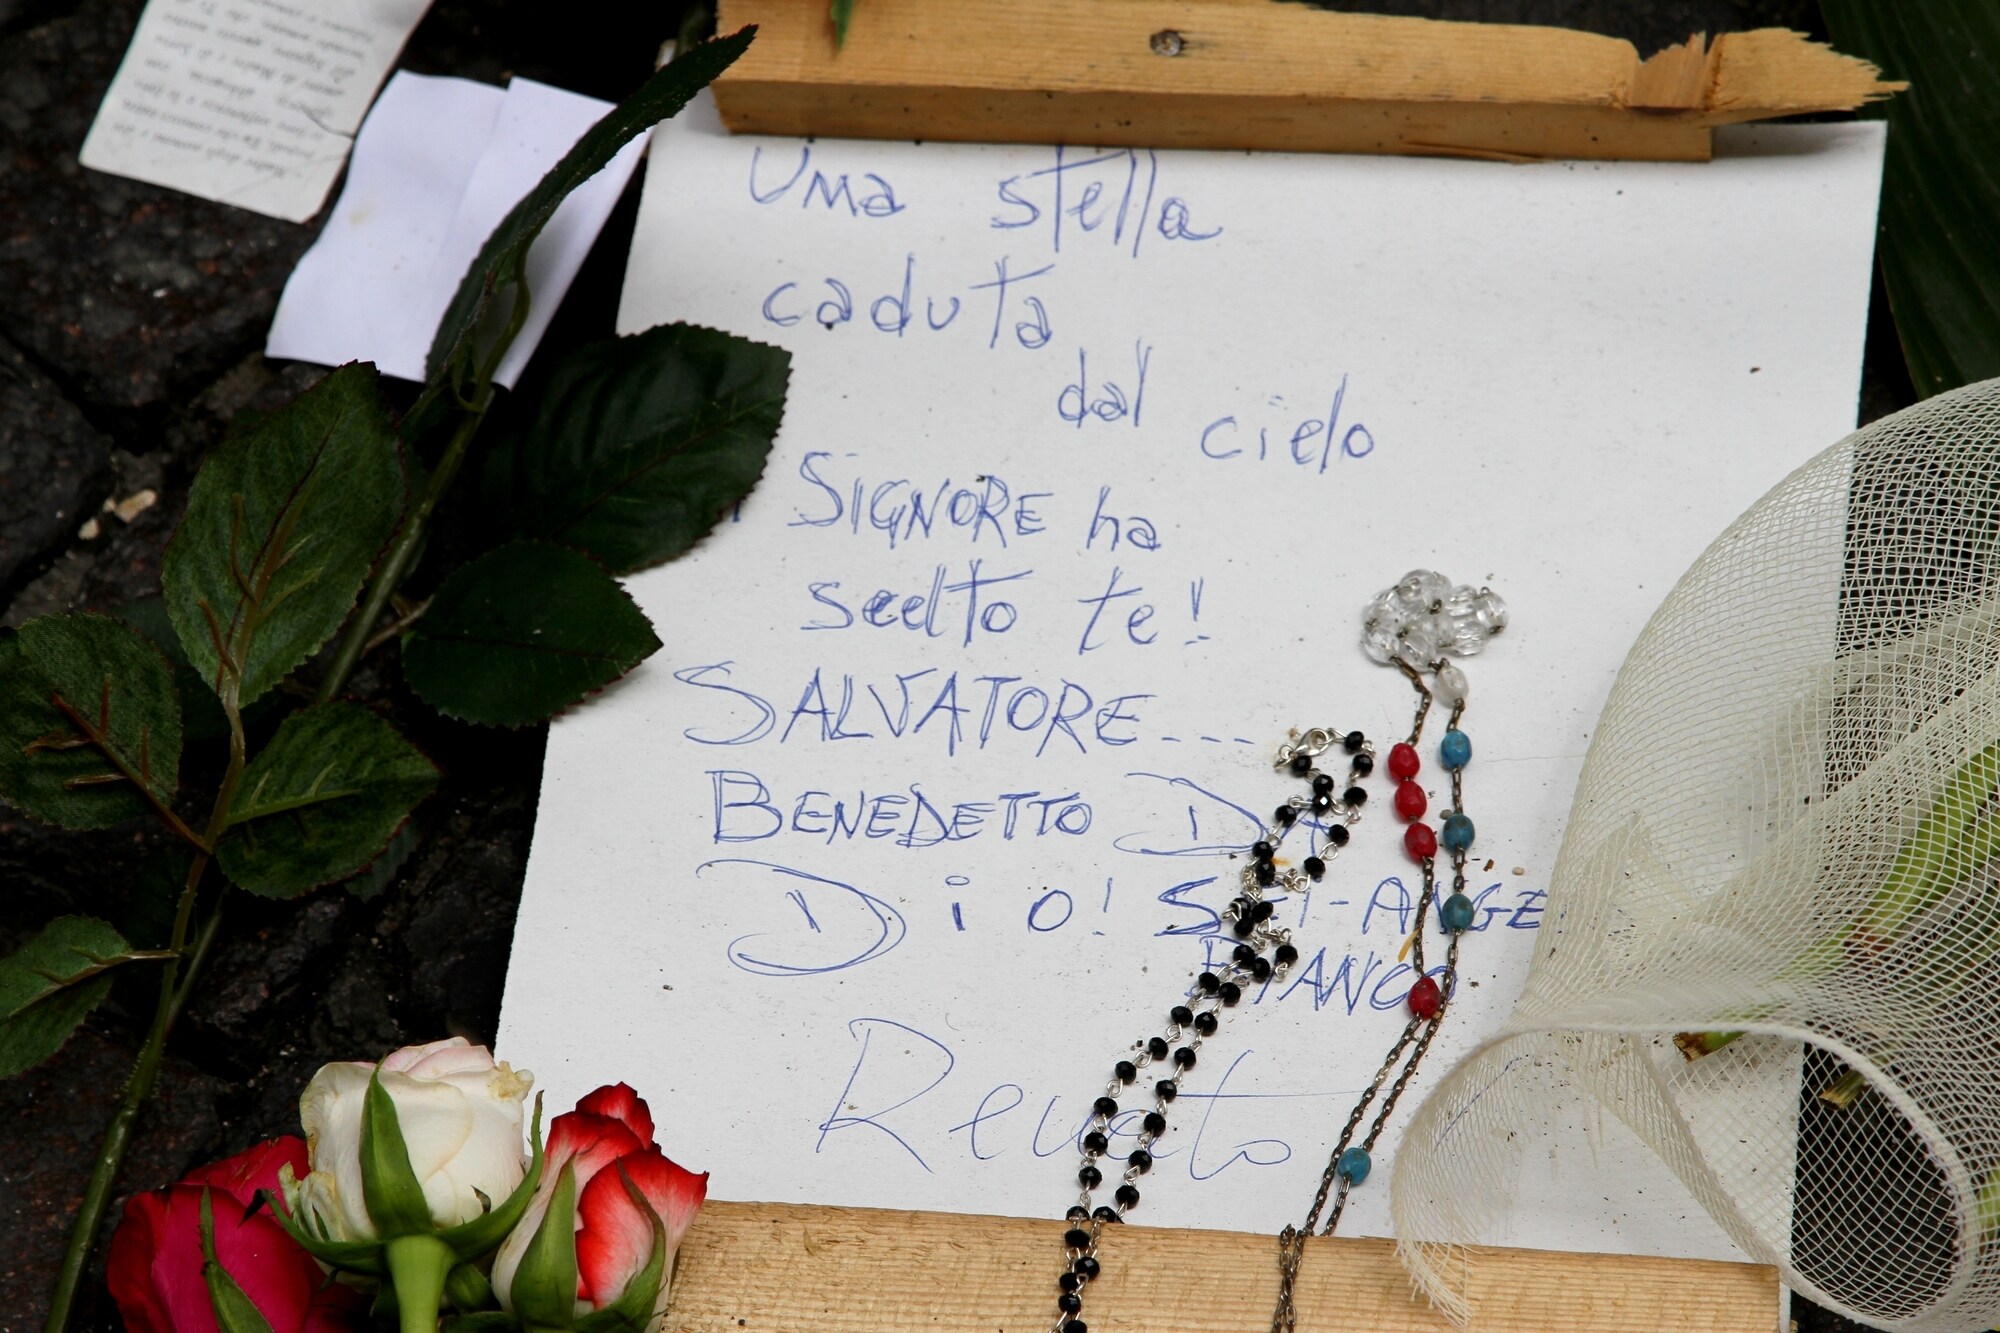 Una stella
caduta
dal cielo
SIGNORE ha
scelto te!
SALVATORE...
BENEDETTO DA
Dio! SEI-ANGE
BIANCO
Renato